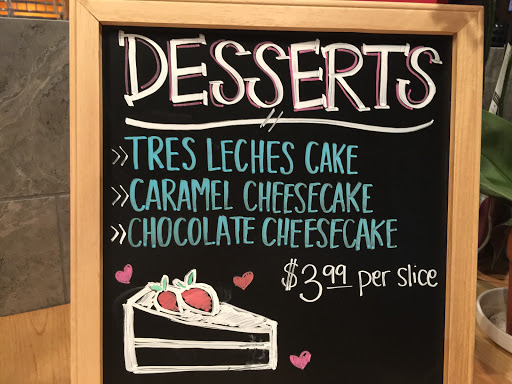 DESSERTS
»TRES LECHES CAKE
»CARAMEL CHEESECAKE
»CHOCOLATE CHEESECAKE
$3.99 per slice